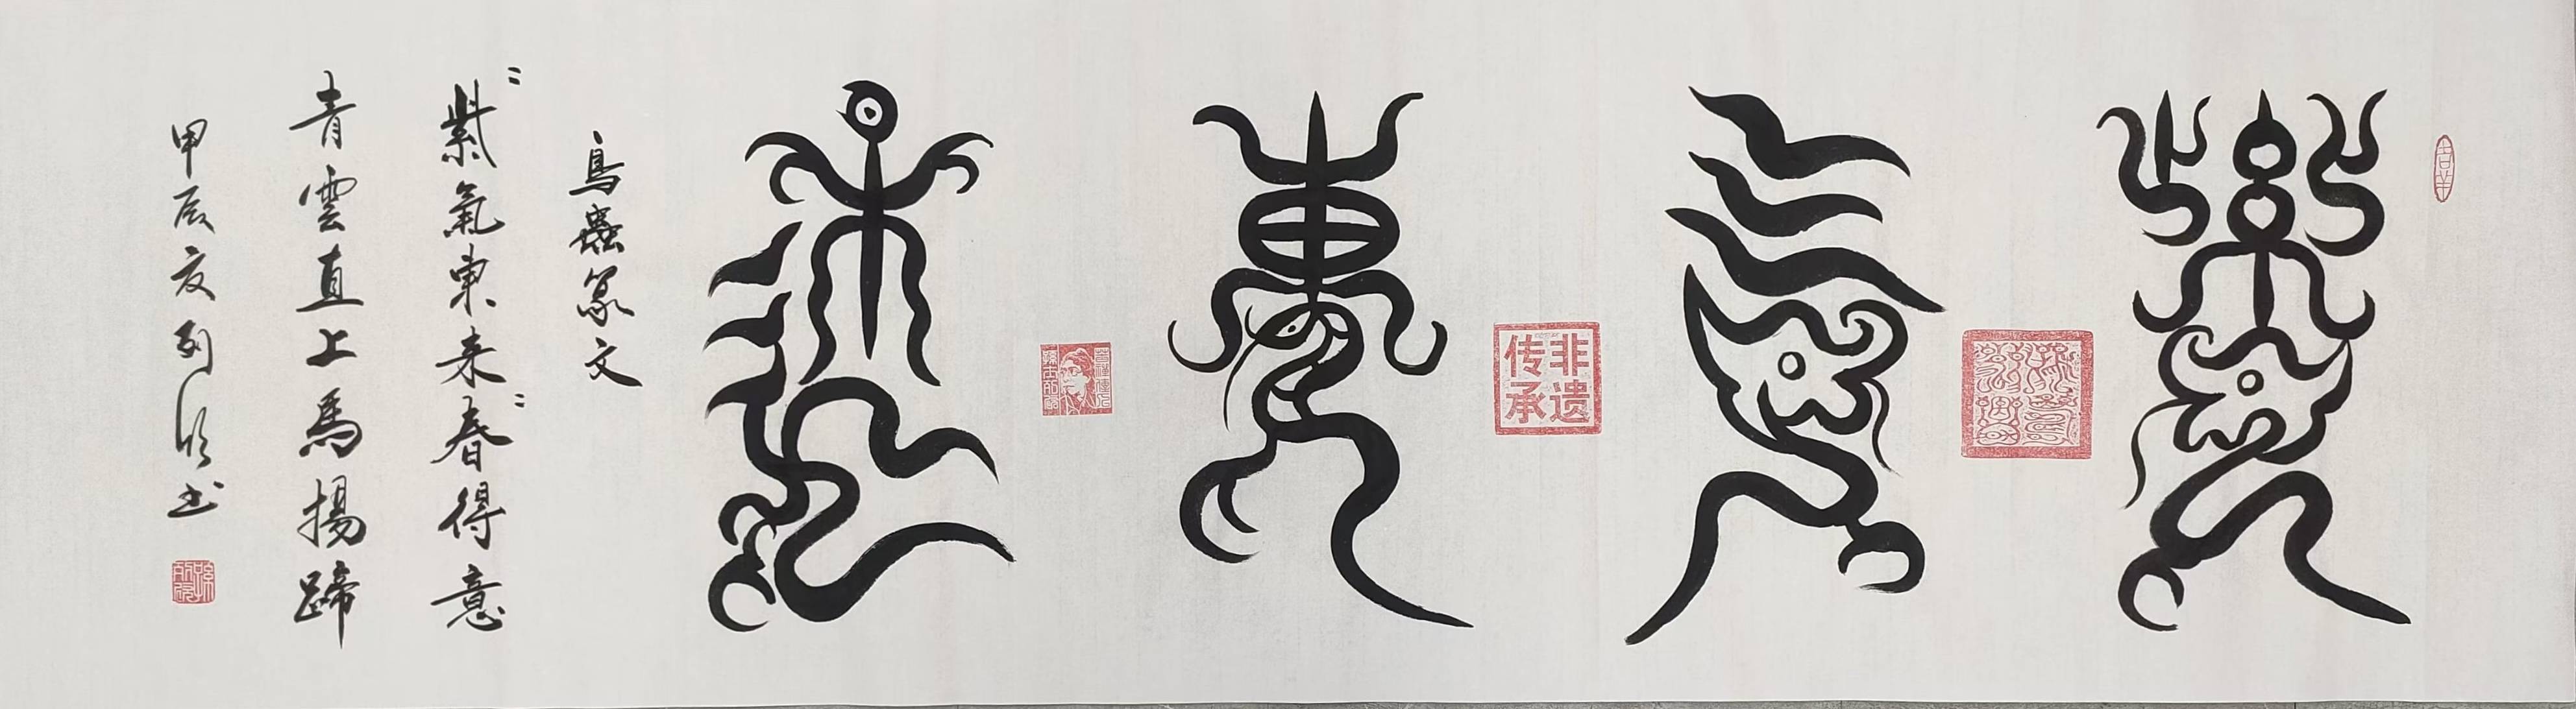 紫氣東來
鳥蟲篆文
"紫氣東来"春得意
青雲直上馬揚蹄
甲辰夏列书
非遗传承